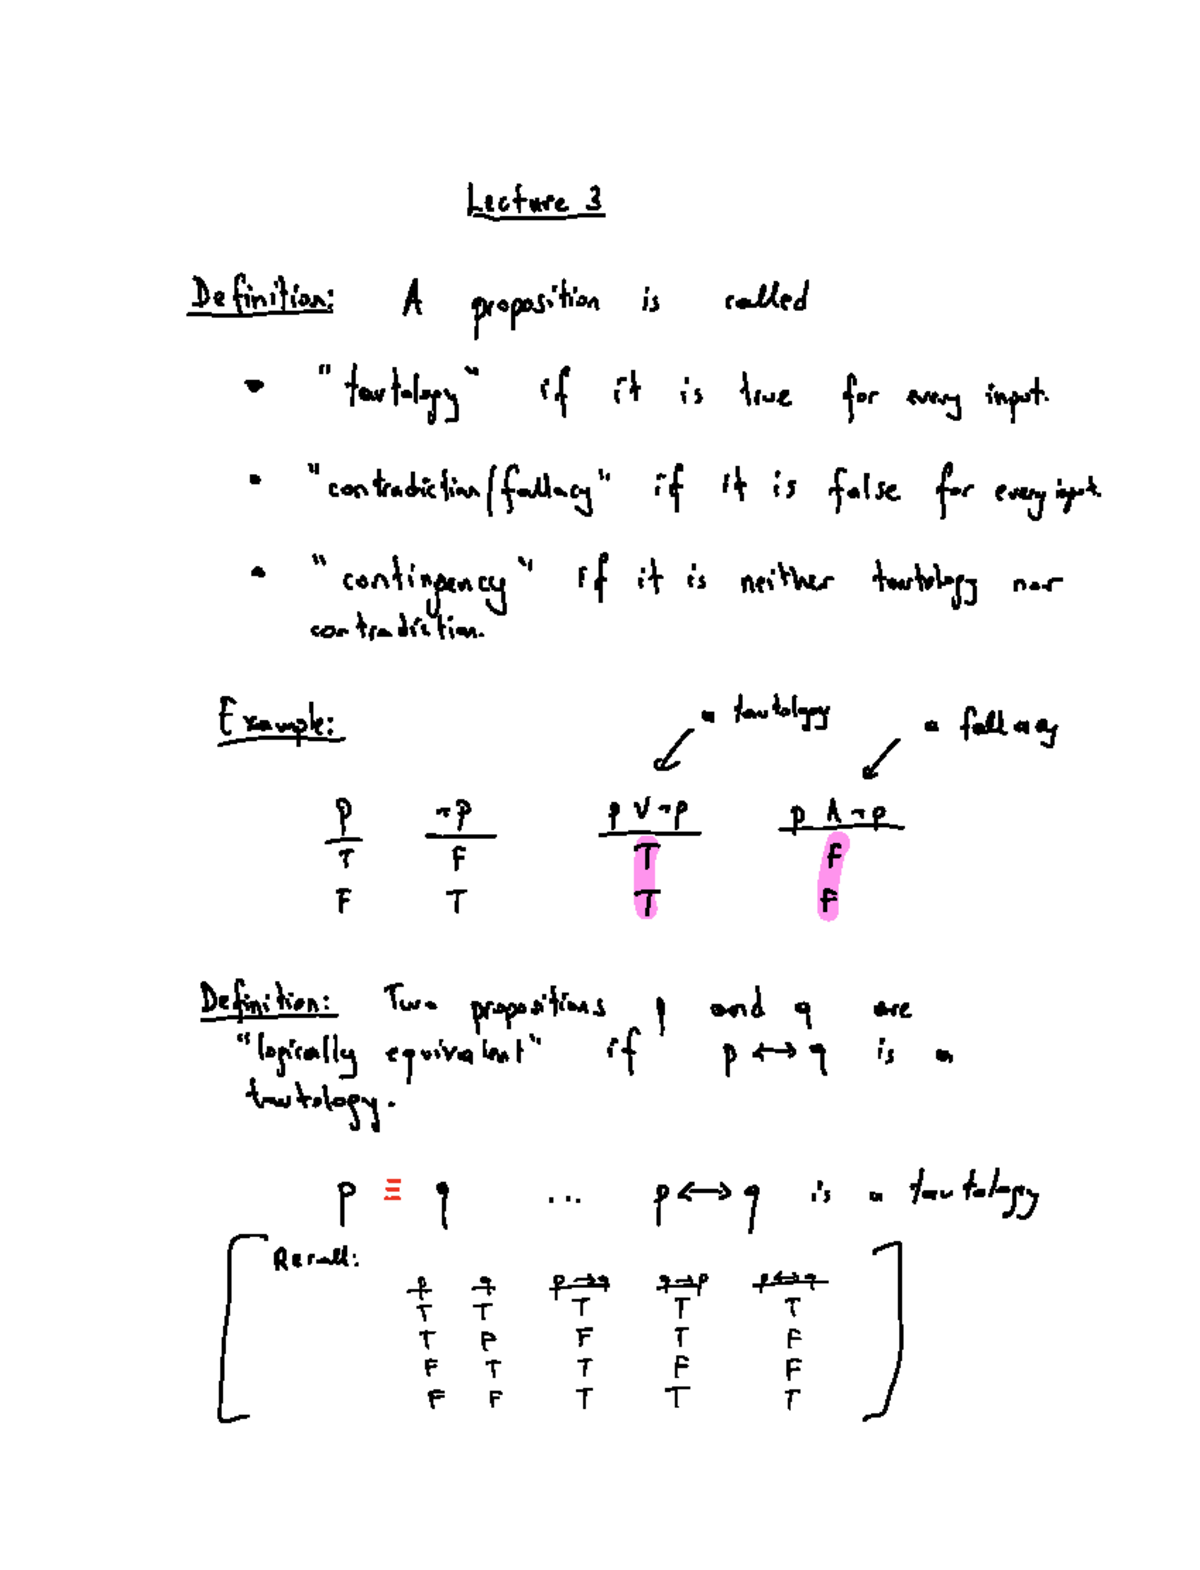 Lecture 3
Definition: A proposition is called
• "tautology" if it is true for every input.
• "contradiction/fallacy" if it is false for every input.
• "contingency" if it is neither tautology nor
contradiction.
Example:
a tautology a fallacy
p ¬p p ∨ ¬p p ∧ ¬p
T F T F
F T T F
Definition: Two propositions p and q are
"logically equivalent" if p ↔ q is a
tautology.
p ≡ q ... p ↔ q is a tautology
Recall:
p q p→q q→p p↔q
T T T T T
T F F T F
F T T F F
F F T T T